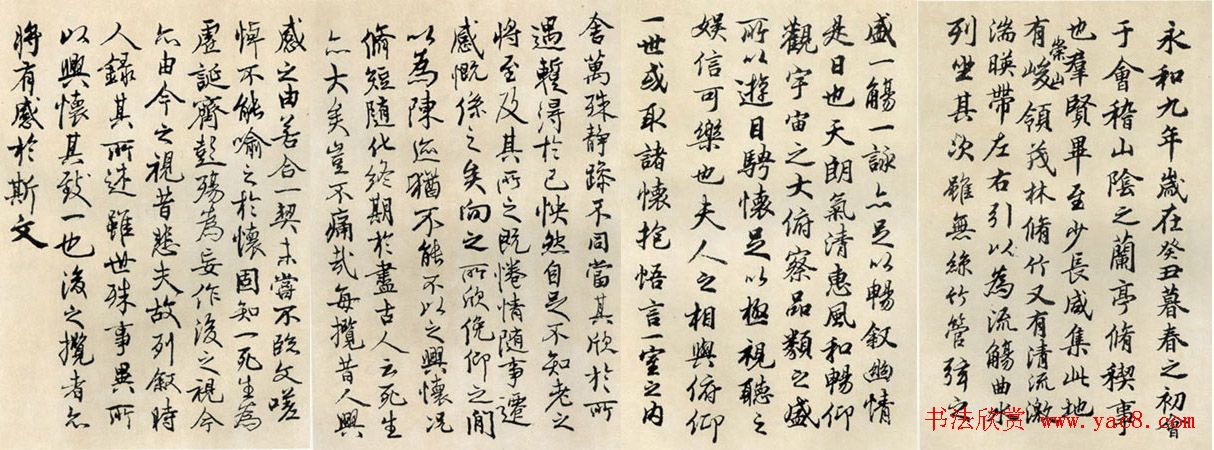 永和九年歲在癸丑暮春之初會
于會稽山陰之蘭亭脩稧事
也羣賢畢至少長咸集此地
有崇山峻領茂林脩竹又有清流激
湍暎帶左右引以為流觴曲水
列坐其次雖無絲竹管弦之
盛一觴一詠亦足以暢叙幽情
是日也天朗氣清惠風和暢仰
觀宇宙之大俯察品類之盛
所以遊目騁懷足以極視聽之
娛信可樂也夫人之相與俯仰
一世或取諸懷抱悟言一室之內
舍萬殊靜躁不同當其欣於所
遇蹔得於己怏然自足不知老之
將至及其所之既惓情隨事遷
感慨係之矣向之所欣俛仰之間
以為陳迹猶不能不以之興懷況
脩短隨化終期於盡古人云死生
亦大矣豈不痛哉每攬昔人興
感之由若合一契未嘗不臨文嗟
悼不能喻之於懷固知一死生為
虛誕齊彭殤為妄作後之視今
亦由今之視昔悲夫故列叙時
人錄其所述雖世殊事異所
以興懷其致一也後之攬者亦
將有感於斯文
书法欣赏 www.yac8.com